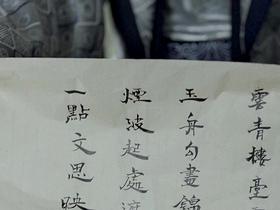 雲青樓臺
玉舟勾畫錦
煙波起處
一點文思映